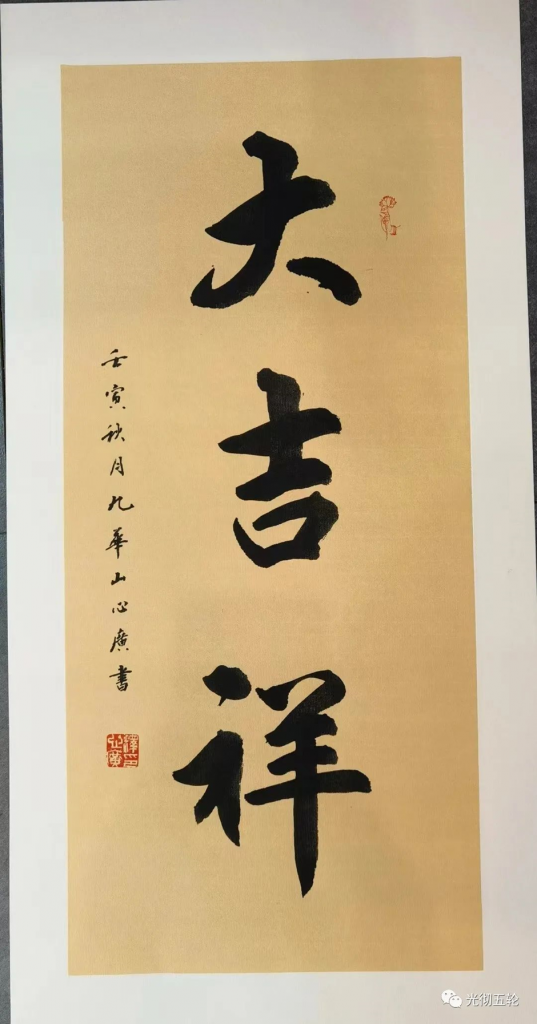 大吉祥
壬寅秋月九華山心廣書
光彻五轮